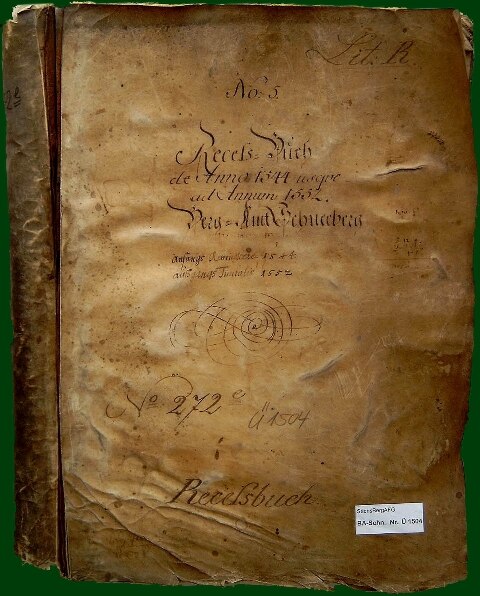 Lit: R.
No. 5.
Recess-Buch
de Anno 1544 usque
ad Annum 1552.
Berg-Amt Schneeberg
anfangs 1544
1552
No 272
Ü 1504
Recessbuch
SächsBergAFG
BA-Schn., Nr. Ü 1504